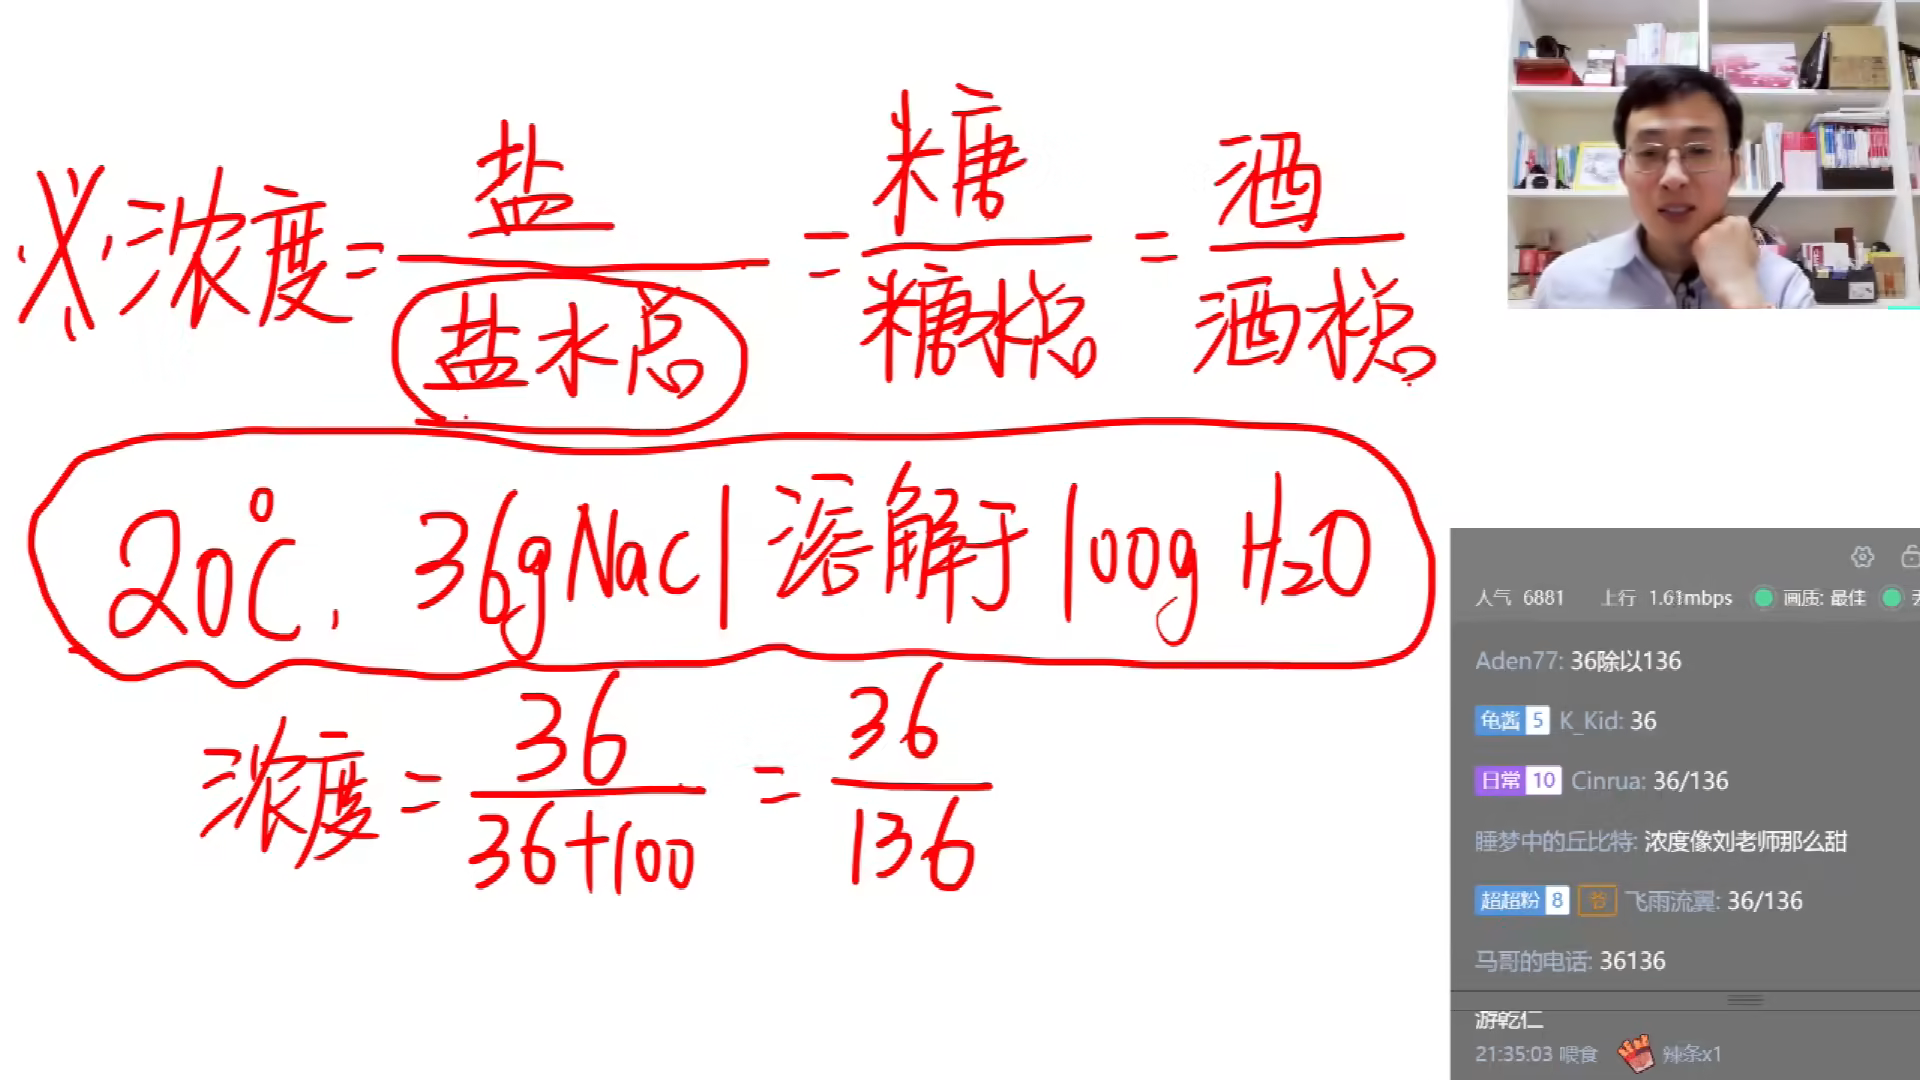 ※浓度=盐/盐水总=糖/糖水总=酒/酒水总
20℃,36gNaCl溶解于100gH₂O
浓度=36/36+100=36/136
人气 6881 上行 1.61mbps 画质: 最佳
Aden77: 36除以136
龟酱 5 K_Kid: 36
日常 10 Cinrua: 36/136
睡梦中的丘比特: 浓度像刘老师那么甜
超超粉 8 爷 飞雨流翼: 36/136
马哥的电话: 36136
游乾仁
21:35:03 喂食 辣条x1